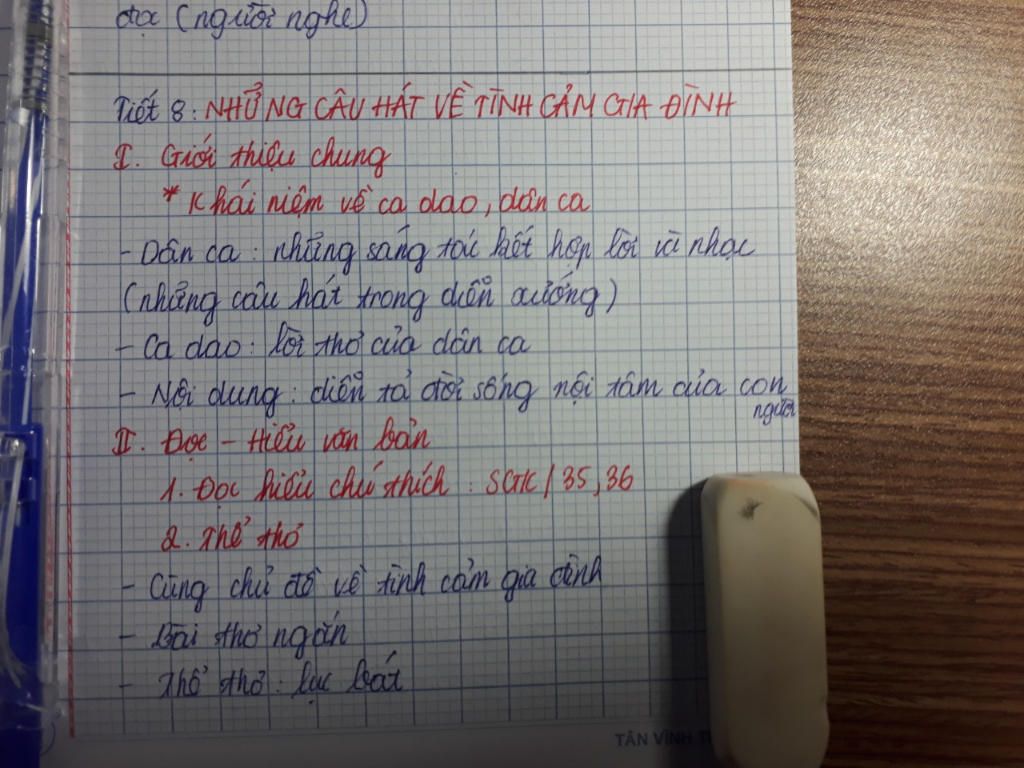 đọc (người nghe)
Tiết 8: NHỮNG CÂU HÁT VỀ TÌNH CẢM GIA ĐÌNH
I. Giới thiệu chung
* Khái niệm về ca dao, dân ca
- Dân ca: những sáng tác kết hợp lời và nhạc
(những câu hát trong diễn xướng)
- Ca dao: lời thơ của dân ca
- Nội dung: diễn tả đời sống nội tâm của con
người
II. Đọc - Hiểu văn bản
1. Đọc hiểu chú thích: SGK/35,36
2. Thể thơ
- Cùng chủ đề về tình cảm gia đình
- Bài thơ ngắn
- Thể thơ: lục bát
TÂN VĨNH